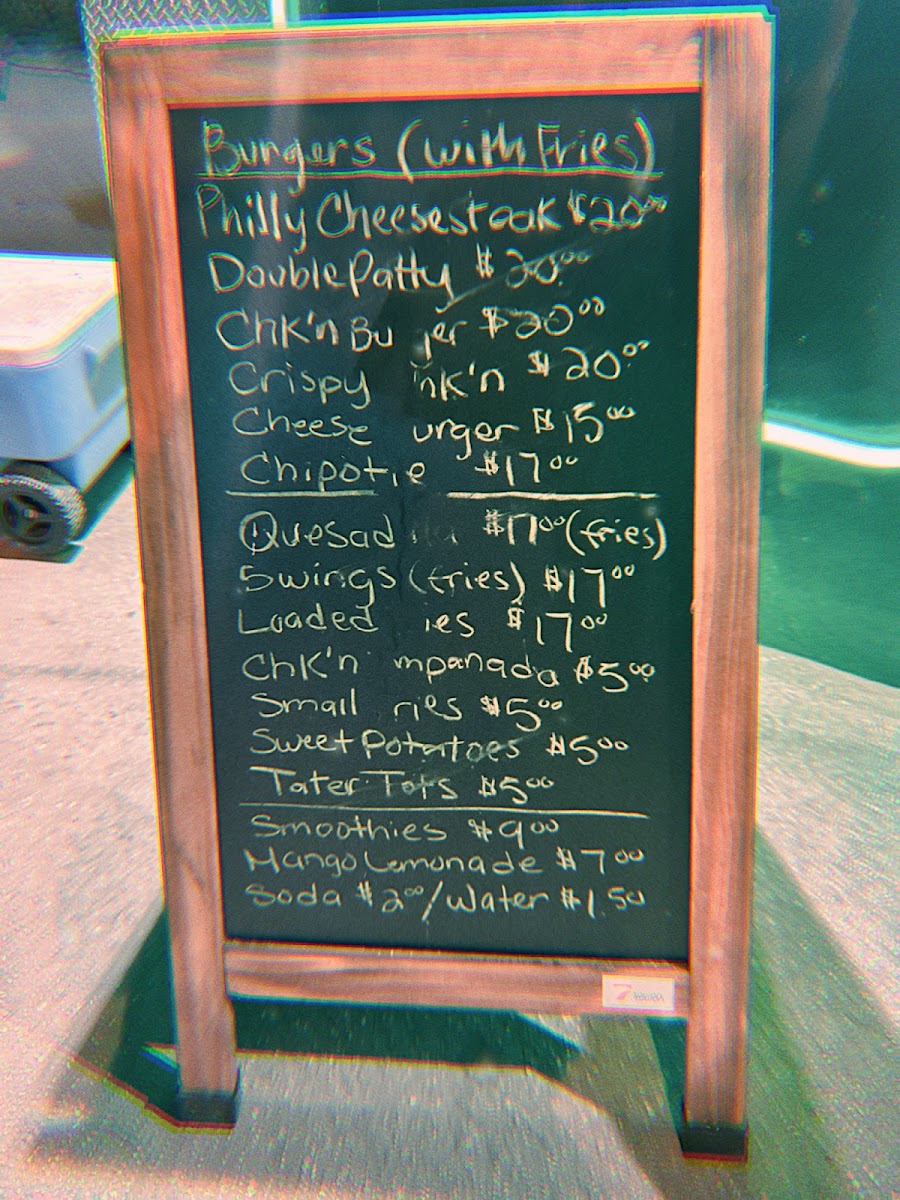 Burgers (with Fries)
Philly Cheesesteak $20.00
Double Patty $20.00
Chk'n Bu ger $20.00
Crispy hk'n $20.00
Cheese urger $15.00
Chipotle $17.00
Quesad lla $17.00 (fries)
5 wings (fries) $17.00
Loaded ies $17.00
Chk'n mpanada $5.00
Small ries $5.00
Sweet Potatoes $5.00
Tater Tots $5.00
Smoothies $9.00
Mango Lemonade $7.00
Soda $2.00/Water $1.50